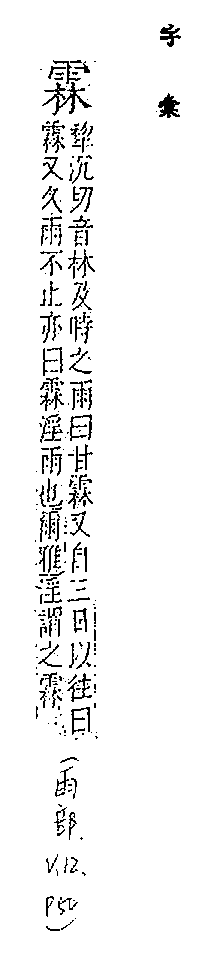 字彙
霖
犂沉切音林及時之雨曰甘霖又自三日以往曰
霖又久雨不止亦曰霖淫雨也爾雅淫謂之霖
(雨部.
V.12、
P50)